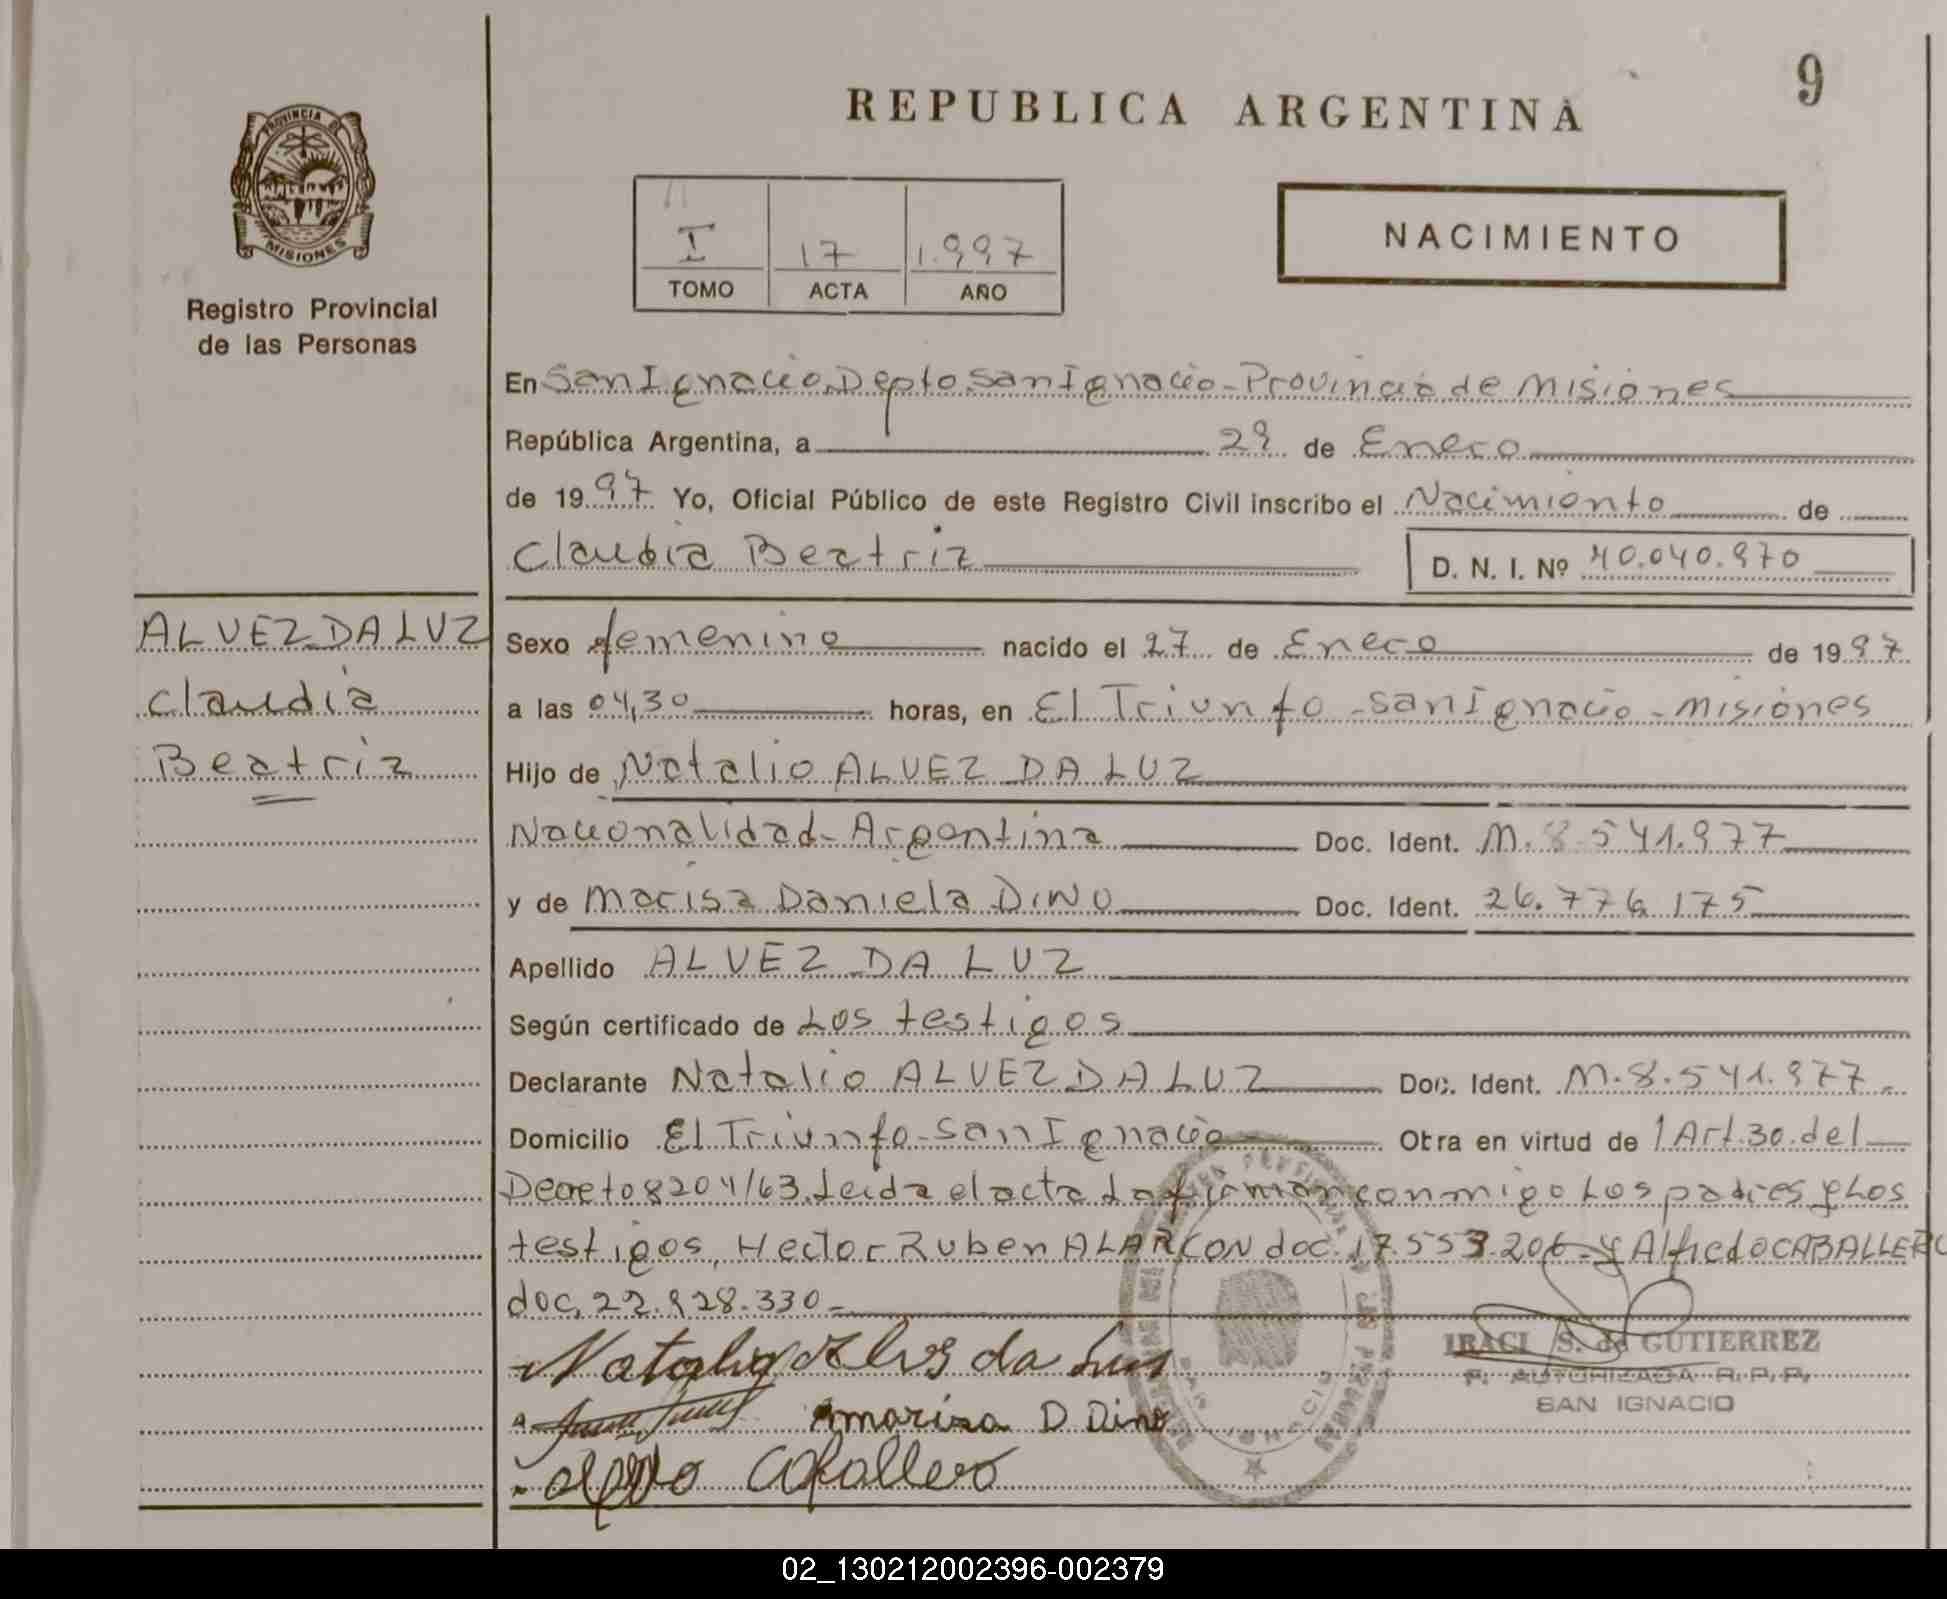 9
REPUBLICA ARGENTINA
PROVINCIA DE
MISIONES
I 17 1.997
TOMO ACTA AÑO
NACIMIENTO
Registro Provincial
de las Personas
En San Ignacio. Depto San Ignacio - Provincia de Misiones
República Argentina, a 29 de Enero
de 1997 Yo, Oficial Público de este Registro Civil inscribo el Nacimiento de
Claudia Beatriz D. N. I. Nº 40.040.970
ALVEZ DA LUZ
Claudia
Beatriz
Sexo femenino nacido el 27 de Enero de 1997
a las 04,30 horas, en El Triunfo - San Ignacio - Misiones
Hijo de Natalio ALVEZ DA LUZ
Nacionalidad - Argentina Doc. Ident. M. 8.541.977
y de Marisa Daniela DINO Doc. Ident. 26.776.175
Apellido ALVEZ DA LUZ
Según certificado de Los testigos
Declarante Natalio ALVEZ DA LUZ Doc. Ident. M. 8.541.977.
Domicilio El Triunfo - San Ignacio Obra en virtud de 1 Art. 30. del
Decreto 8204/63. Leida el acta La firman conmigo Los padres y Los
testigos, Hector Ruben ALARCON doc. 17.553.206 - y Alfredo CABALLERO
doc, 22.928.330 -
Natalio Alves da Lus
Marisa D Dino
Caballero
IRACI S. de GUTIERREZ
F. AUTORIZADA R. P. P.
SAN IGNACIO
SAN IGNACIO
02_130212002396-002379